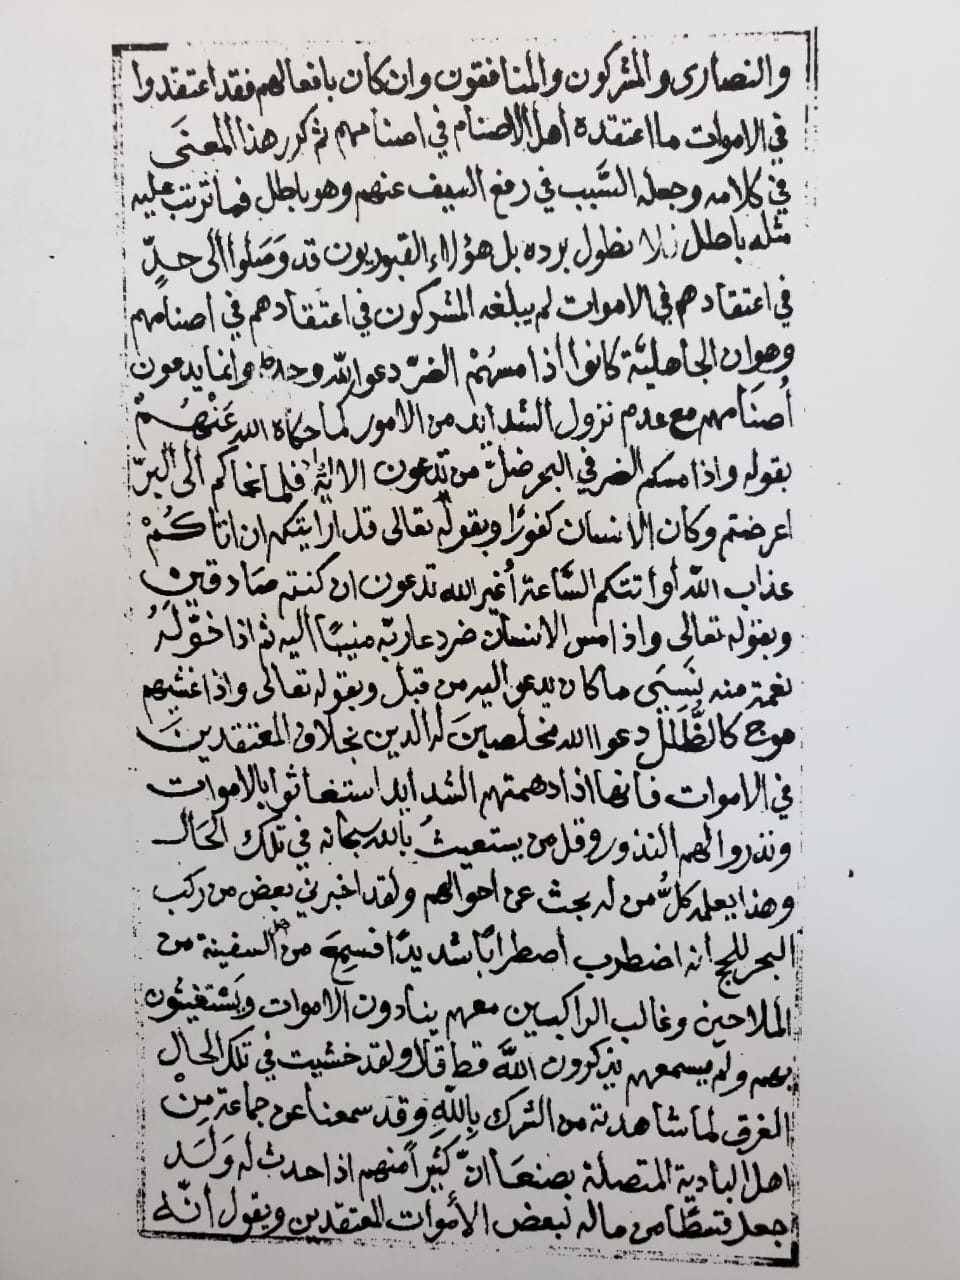 والنصارى والمشركون والمنافقون وان كان بافعالهم فقد اعتقدوا
في الاموات ما اعتقده اهل الاصنام في اصنامهم ثم كرر هذا المعنَى
في كلامه وجعله السَّبب في رفع السيف عنهم وهو باطل فما ترتب عليه
مثله باطل فلا نطول برده بل هؤلاء القبوريون قد وَصَلوا الى حدٍّ
في اعتقادهم في الاموات لم يبلغه المشركون في اعتقادهم في اصنامهم
وهو ان الجاهليَّة كانوا اذا مسهُمْ الضرّ دعوا الله وحده وانما يدعون
أصنَامهم مع عدم نزول الشدايد من الامور كما حكاه الله عَنْهُمْ
بقوله واذا مسكم الضر في البحر ضلَّ من تدعون الا ايَّاه فلما نجاكم الى البرّ
اعرضتم وكان الانسان كفورًا وبقوله تعالى قل ارايتكم ان اتاكُمْ
عذاب الله أو اتتكم السَّاعة أغير الله تدعون ان كنتم صَادقين
وبقوله تعالى واذا مس الانسان ضر دعا ربّه منيبًا اليه ثم اذا خوَّلَهُ
نعمة منه نَسِىَ ما كان يدعو اليه من قبل وبقوله تعالى واذا غشيهم
موج كالظُّلَل دعوا الله مخلصينَ له الدين بخلاف المعتقدينَ
في الاموات فانها اذا دهمتهم الشدايد استغاثوا بالاموات
ونذروا لهم النذور وقل من يستغيثُ بالله سبحانه في تلك الحَال
وهذا يعلمه كلُّ من له بحث عن احوالهم ولقد اخبرني بعض من ركب
البحر للحج انه اضطرب اضطرابًا شديدًا فسمِعَ من اهل السفينة من
الملاحين وغالب الراكبين معهم ينادون الاموات ويَسْتغيثون
بهم ولم يسمعهم يذكرون اللهَ قط قال ولقد خشيت في تلك الحال
الغرق لما شاهدته من الشرك بِاللهِ وقد سمعنا عن جماعة مِنْ
اهل البادية المتصلة بصنعَا انّ كثيرًا منهم اذا حدث له وَلَد
جعل قسطًا من ماله لبعض الأموات المعتقدين ويقول أنّه